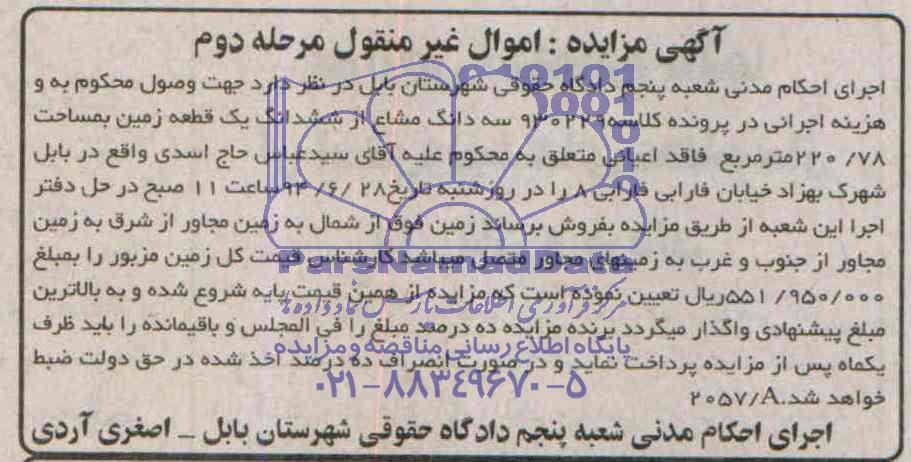 آگهی مزایده : اموال غیر منقول مرحله دوم
اجرای احکام مدنی شعبه پنجم دادگاه حقوقی شهرستان بابل در نظر دارد جهت وصول محکوم به و
هزینه اجرائی در پرونده کلاسه ۹۳۰۲۲۹ سه دانگ مشاع از ششدانگ یک قطعه زمین بمساحت
۲۲۰/۷۸ مترمربع فاقد اعیانی متعلق به محکوم علیه آقای سیدعباس حاج اسدی واقع در بابل
شهرک بهزاد خیابان فارابی فارابی ۸ را در روزشنبه تاریخ ۹۴/۶/۲۸ ساعت ۱۱ صبح در حل دفتر
اجرا این شعبه از طریق مزایده بفروش برساند زمین فوق از شمال به زمین مجاور از شرق به زمین
مجاور از جنوب و غرب به زمینهای مجاور متصل میباشد کارشناس قیمت کل زمین مزبور را بمبلغ
۵۵۱/۹۵۰/۰۰۰ ریال تعیین نموده است که مزایده از همین قیمت پایه شروع شده و به بالاترین
مبلغ پیشنهادی واگذار میگردد برنده مزایده ده درصد مبلغ را فی المجلس و باقیمانده را باید ظرف
یکماه پس از مزایده پرداخت نماید و در صورت انصراف ده درصد اخذ شده در حق دولت ضبط
خواهد شد.۲۰۵۷/A
اجرای احکام مدنی شعبه پنجم دادگاه حقوقی شهرستان بابل _ اصغری آردی
ParsNamadData
مرکز فرآوری اطلاعات پارس نماد داده ها
پایگاه اطلاع رسانی مناقصه و مزایده
۰۲۱-۸۸۳۴۹۶۷۰-۵